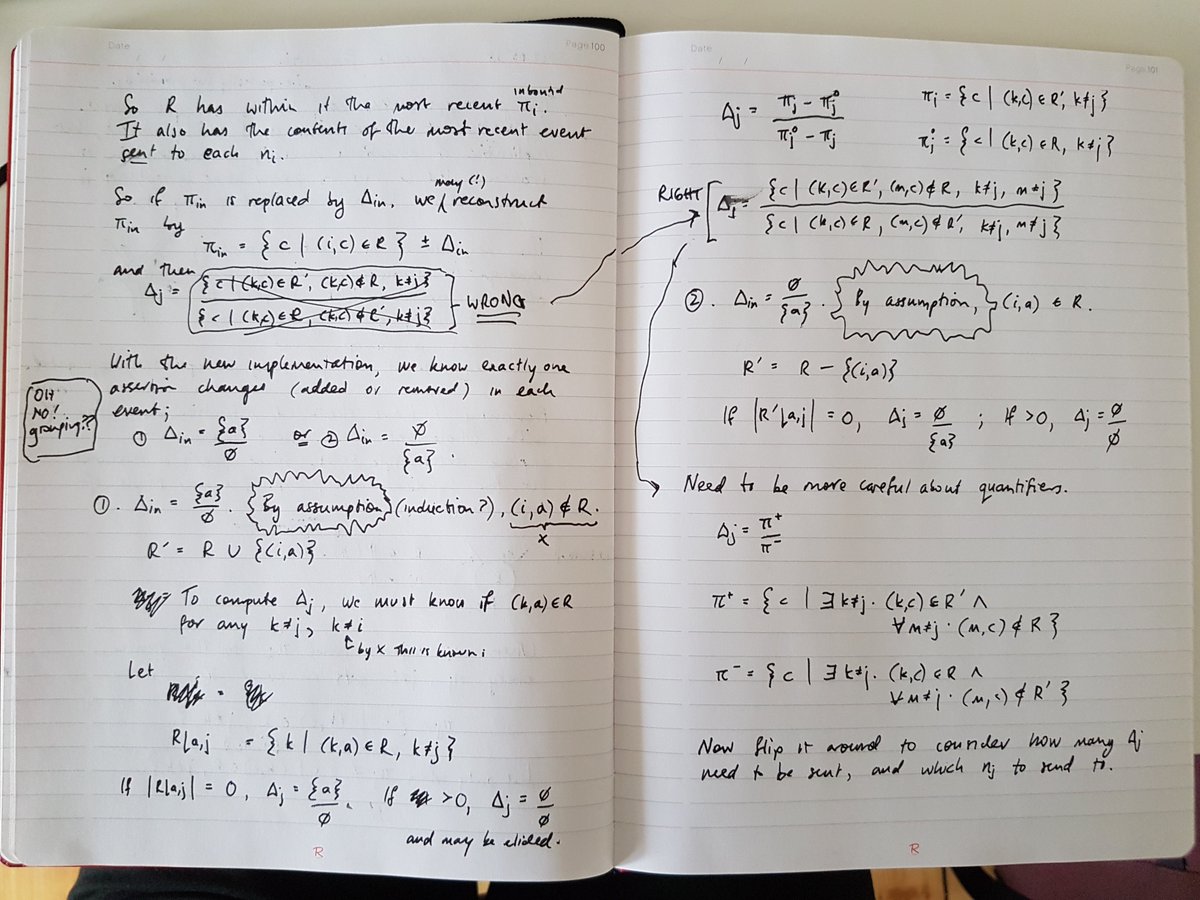 Date
Page 100
So R has within it the most recent inbound πᵢ.
It also has the contents of the most recent event
sent to each nᵢ.
So if πin is replaced by Δin, we may (!) reconstruct
πin by
πin = { c | (i,c) ∈ R } ± Δin
and then
Δj = { c | (k,c) ∈ R', (k,c) ∉ R, k≠j }
{ c | (k,c) ∈ R, (k,c) ∉ R', k≠j }
WRONG
With the new implementation, we know exactly one
assertion changes (added or removed) in each
event;
OH
NO!
grouping??
① Δin = {a}/∅ or ② Δin = ∅/{a}.
①. Δin = {a}/∅. By assumption (induction?), (i,a) ∉ R.
x
R' = R ∪ {(i,a)}.
To compute Δj, we must know if (k,a) ∈ R
for any k≠j, k≠i
by x this is known;
Let
R⌊a,j = { k | (k,a) ∈ R, k≠j }
If |R⌊a,j| = 0, Δj = {a}/∅. If >0, Δj = ∅/∅
and may be elided.
R
Date
Page 101
Δj = πj - πj° / πj° - πj
πj = { c | (k,c) ∈ R', k≠j }
πj° = { c | (k,c) ∈ R, k≠j }
RIGHT
Δj = { c | (k,c) ∈ R', (m,c) ∉ R, k≠j, m≠j }
{ c | (k,c) ∈ R, (m,c) ∉ R', k≠j, m≠j }
②. Δin = ∅/{a}. By assumption, (i,a) ∈ R.
R' = R - {(i,a)}
If |R'⌊a,j| = 0, Δj = ∅/{a} ; If >0, Δj = ∅/∅
Need to be more careful about quantifiers.
Δj = π⁺/π⁻
π⁺ = { c | ∃k≠j. (k,c) ∈ R' ∧
∀m≠j. (m,c) ∉ R }
π⁻ = { c | ∃k≠j. (k,c) ∈ R ∧
∀m≠j. (m,c) ∉ R' }
Now flip it around to consider how many Δj
need to be sent, and which nj to send to.
R